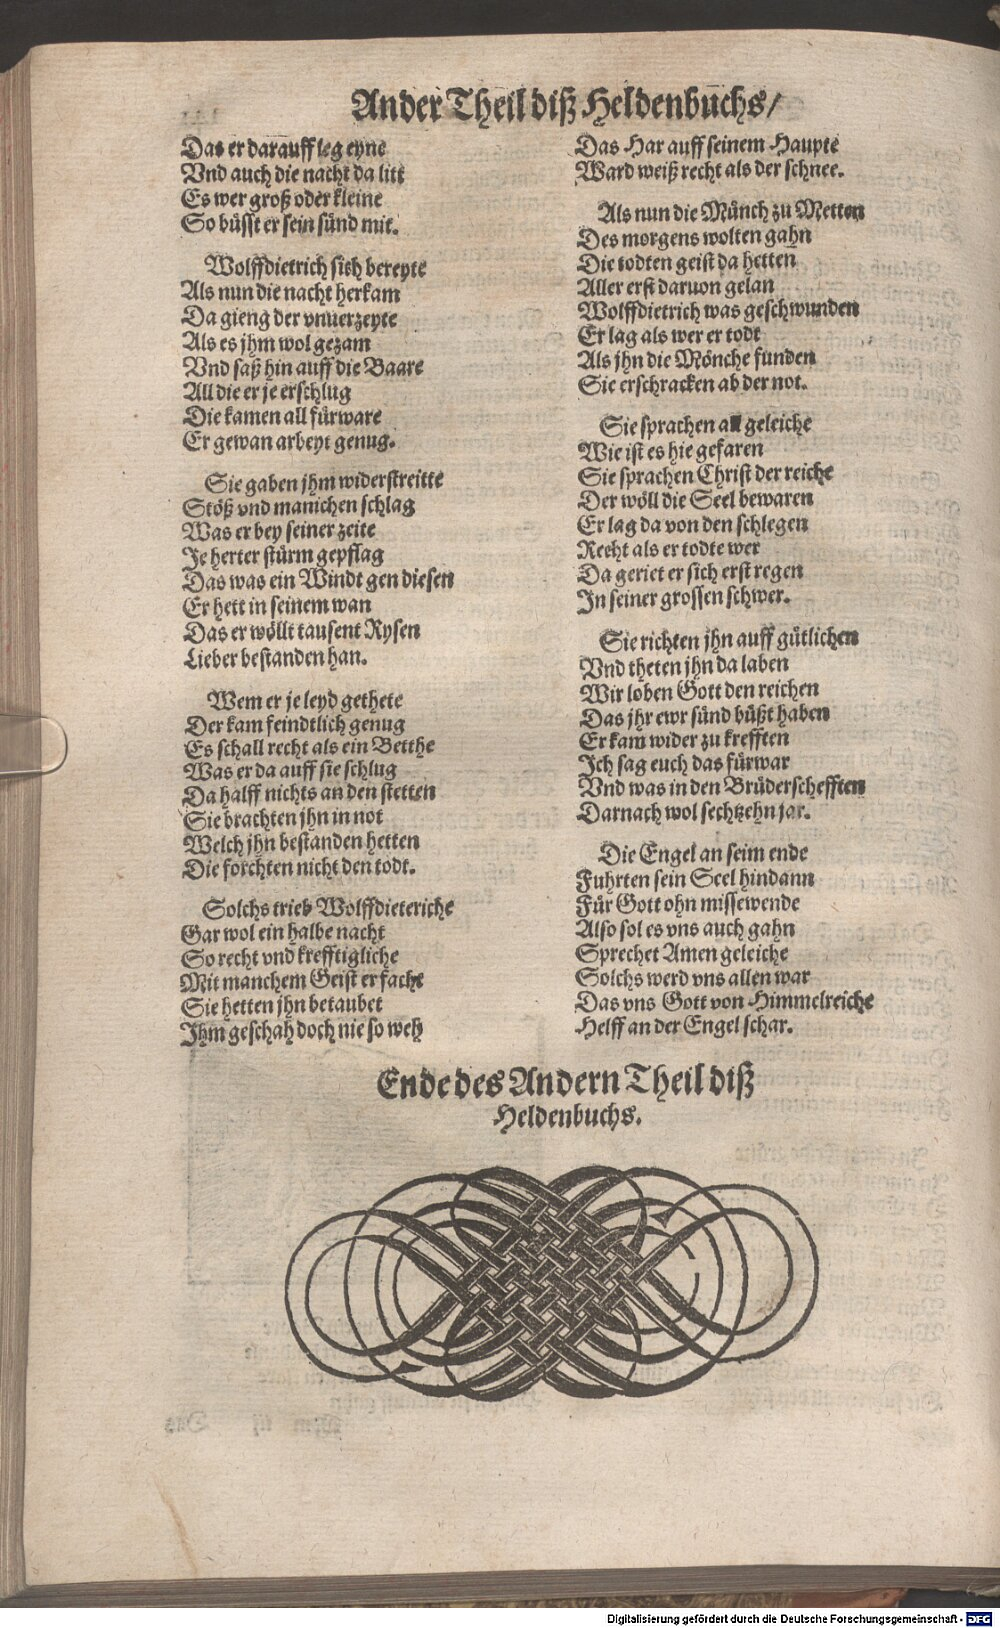 Ander Theil diß Heldenbuchs/
Das er darauff leg eyne
Vnd auch die nacht da litt
Es wer groß oder kleine
So büsst er sein sünd mit.
Wolffdietrich sich bereyte
Als nun die nacht herkam
Da gieng der vnuerzeyte
Als es jhm wol gezam
Vnd saß hin auff die Baare
All die er je erschlug
Die kamen all fürware
Er gewan arbeyt genug.
Sie gaben jhm widerstreitte
Stöß vnd manichen schlag
Was er bey seiner zeite
Je herter stürm gepflag
Das was ein Windt gen diesen
Er hett in seinem wan
Das er wöllt tausent Rysen
Lieber bestanden han.
Wem er je leyd gethete
Der kam feindtlich genug
Es schall recht als ein Betthe
Was er da auff sie schlug
Da halff nichts an den stetten
Sie brachten jhn in not
Welch jhn bestanden hetten
Die forchten nicht den todt.
Solchs trieb Wolffdieteriche
Gar wol ein halbe nacht
So recht vnd krefftigliche
Mit manchem Geist er facht
Sie hetten jhn betaubet
Ihm geschah doch nie so weh
Das Har auff seinem Haupte
Ward weiß recht als der schnee.
Als nun die Münch zu Metten
Des morgens wolten gahn
Die todten geist da hetten
Aller erst daruon gelan
Wolffdietrich was geschwunden
Er lag als wer er todt
Als jhn die Mönche funden
Sie erschracken ab der not.
Sie sprachen all geleiche
Wie ist es hie gefaren
Sie sprachen Christ der reiche
Der wöll die Seel bewaren
Er lag da von den schlegen
Recht als er todte wer
Da geriet er sich erst regen
In seiner grossen schwer.
Sie richten jhn auff gütlichen
Vnd theten jhn da laben
Wir loben Gott den reichen
Das jhr ewr sünd büßt haben
Er kam wider zu krefften
Ich sag euch das fürwar
Vnd was in den Brüderschefften
Darnach wol sechtzehn jar.
Die Engel an seim ende
Fuhrten sein Seel hindann
Für Gott ohn missewende
Also sol es vns auch gahn
Sprechet Amen geleiche
Solchs werd vns allen war
Das vns Gott von Himmelreiche
Helff an der Engel schar.
Ende des Andern Theil diß
Heldenbuchs.
Digitalisierung gefördert durch die Deutsche Forschungsgemeinschaft - DFG